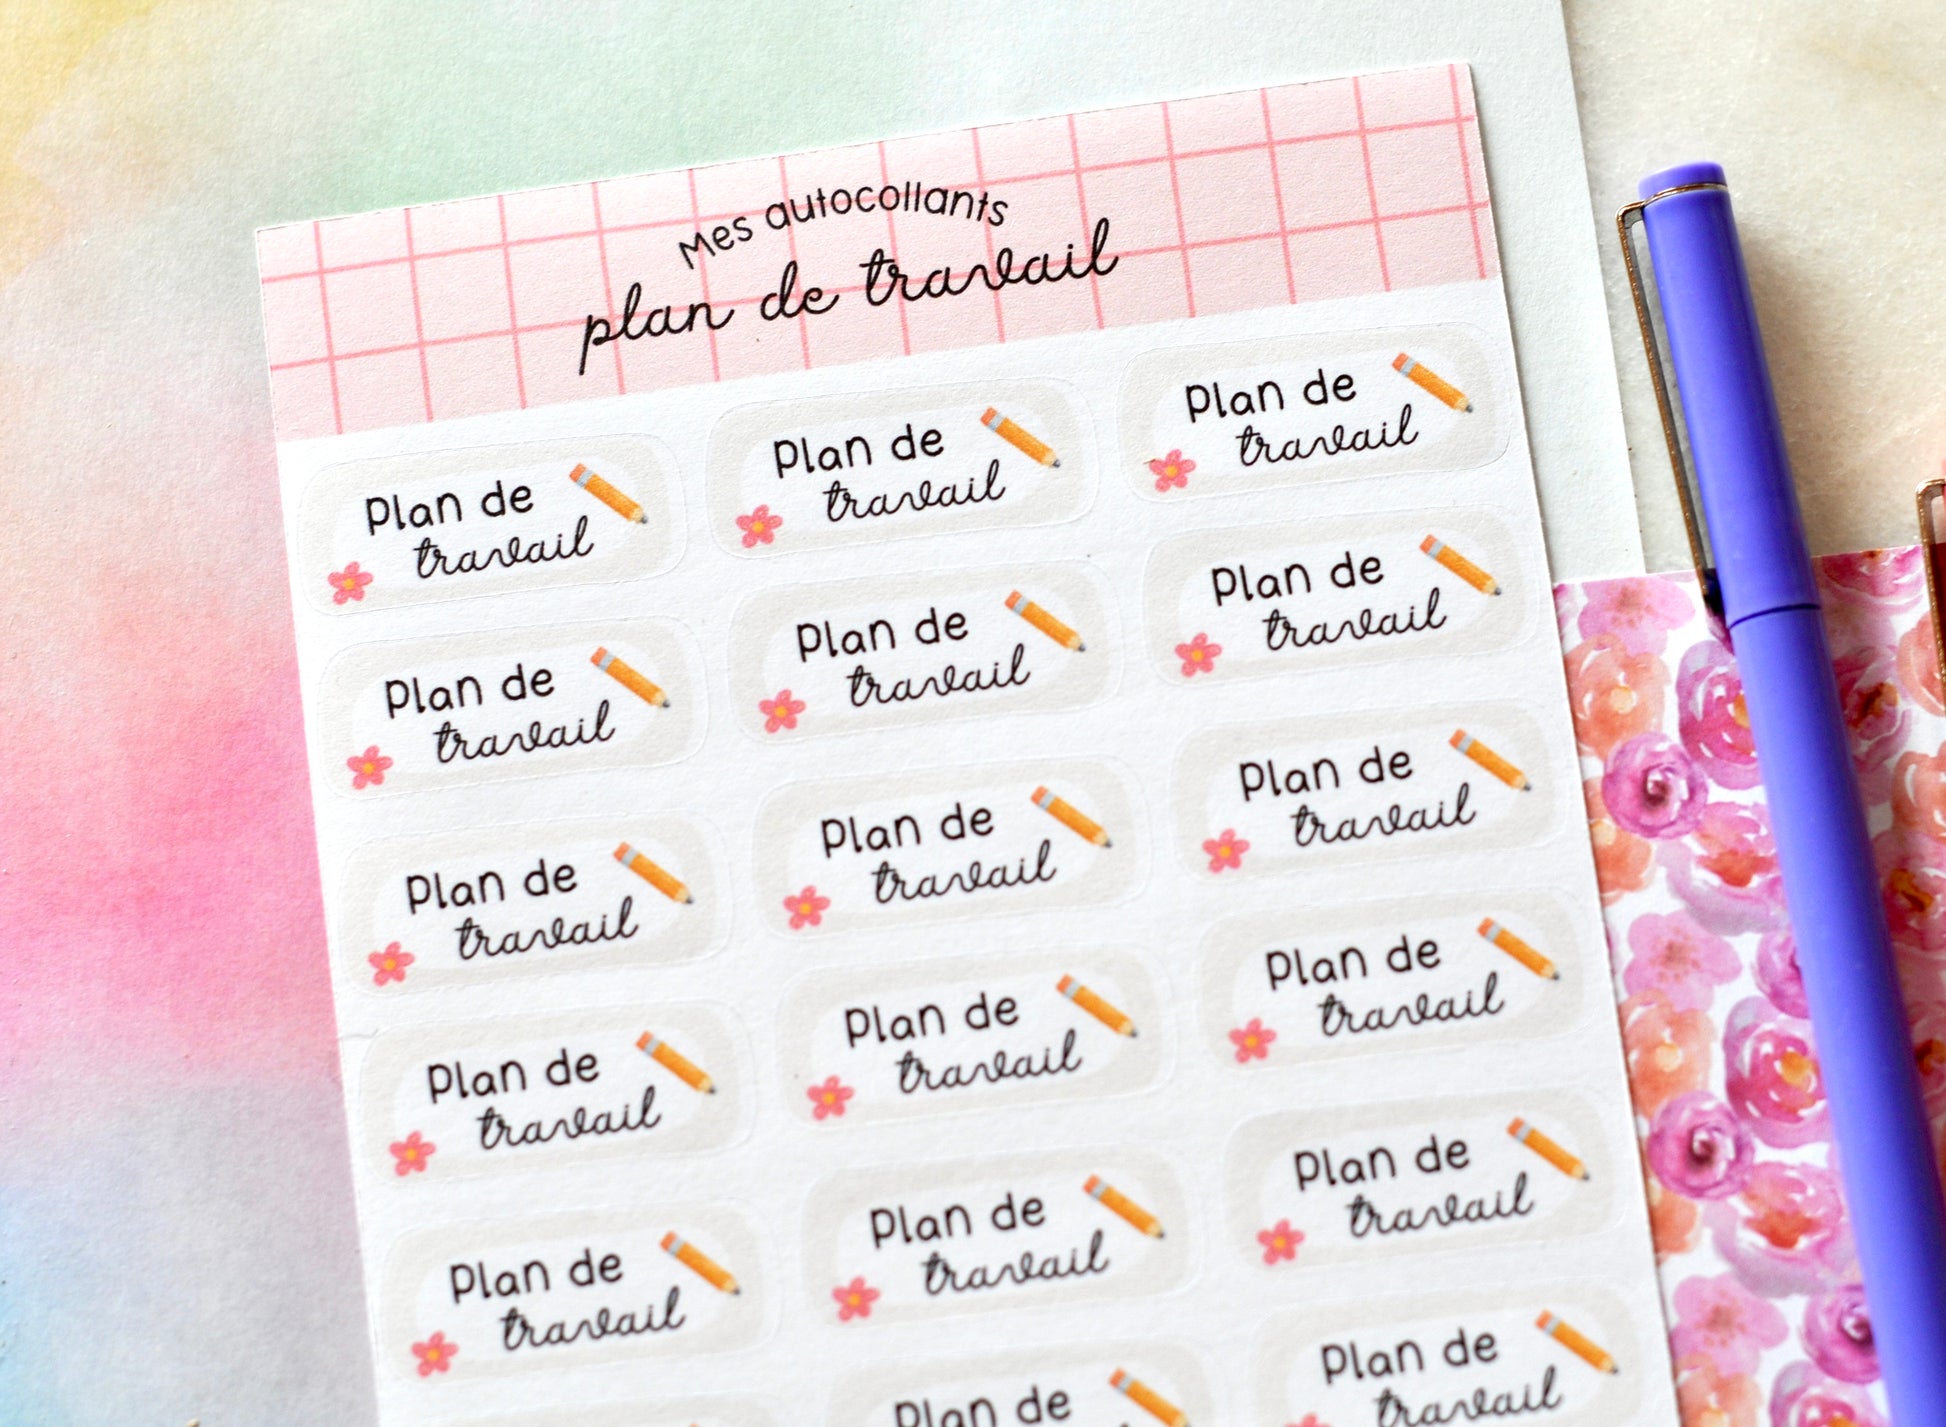 Mes autocollants
plan de travail
Plan de
travail
Plan de
travail
Plan de
travail
Plan de
travail
Plan de
travail
Plan de
travail
Plan de
travail
Plan de
travail
Plan de
travail
Plan de
travail
Plan de
travail
Plan de
travail
Plan de
travail
Plan de
travail
Plan de
travail
Plan de
Plan de
travail